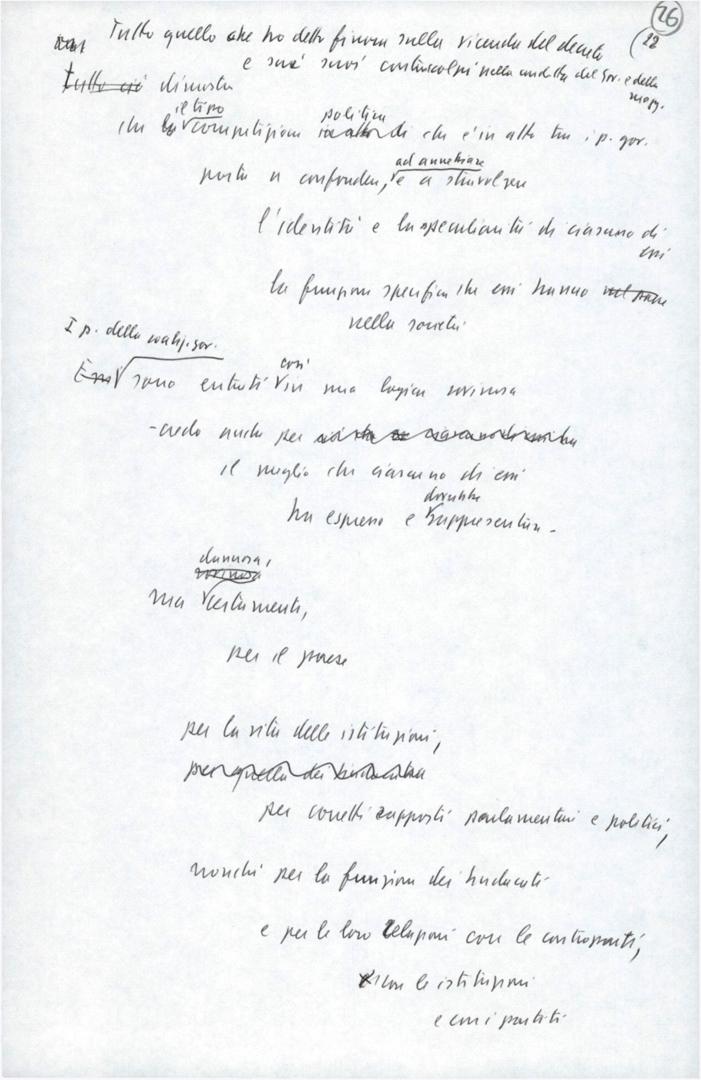 26
Tutto quello che ho detto finora sulla vicenda del decreto (22
e sui suoi contraccolpi nella condotta del gov. e della magg.
Tutto ciò dimostra
il tipo politica
che la competizione in atto di che è in atto tra i p. gov.
ad annebbiare
porta a confondere, e a stravolgere
l'identità e la peculiarità di ciascuno di essi
la funzione specifica che essi hanno
nella società
I p. della coaliz. gov. così
Essi sono entrati in una logica rovinosa
- credo anche per
il meglio che ciascuno di essi
dovrebbe
ha espresso e rappresentare -
dannosa,
rovinosa
ma certamente,
per il paese
per la vita delle istituzioni,
per quella dei sindacati
per corretti rapporti parlamentari e politici,
nonché per la funzione dei sindacati
e per le loro relazioni con le controparti,
con le istituzioni
e con i partiti